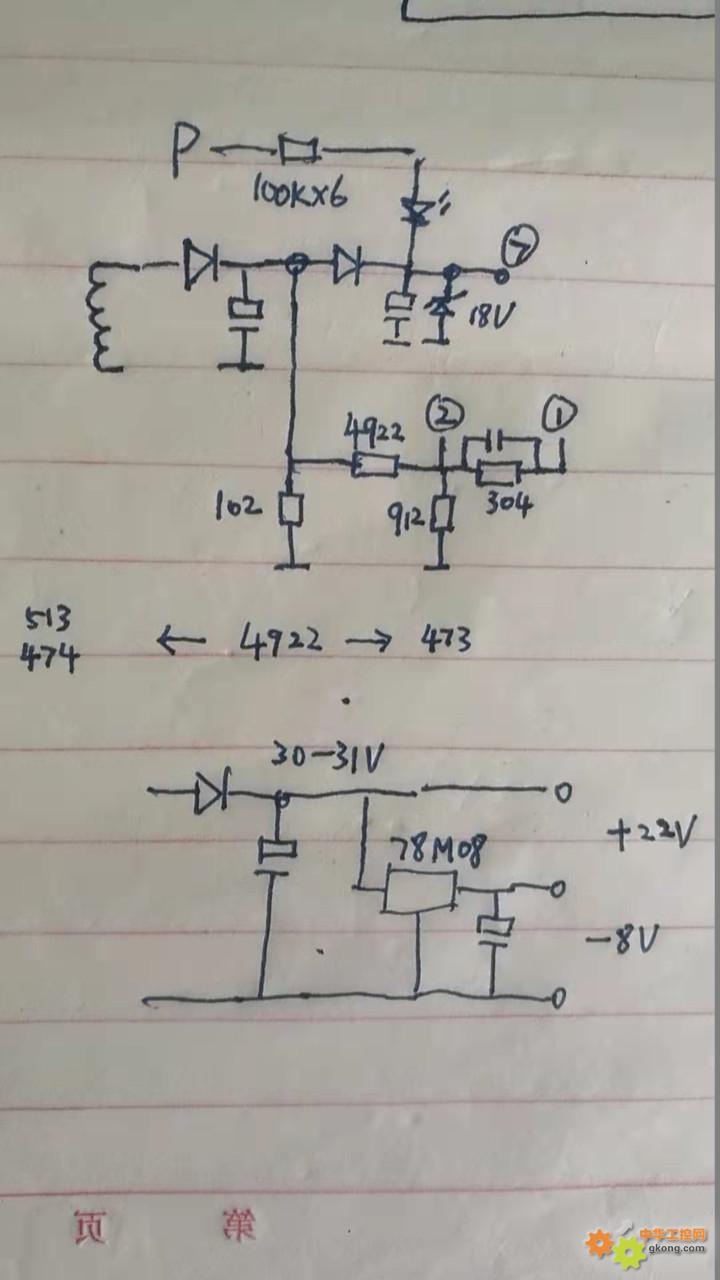 P
100K×6
⑦
18V
4922
②
①
102
912
304
513
474
← 4922 → 473
30-31V
78M08
+22V
-8V
第 页
中华工控网
gkong.com